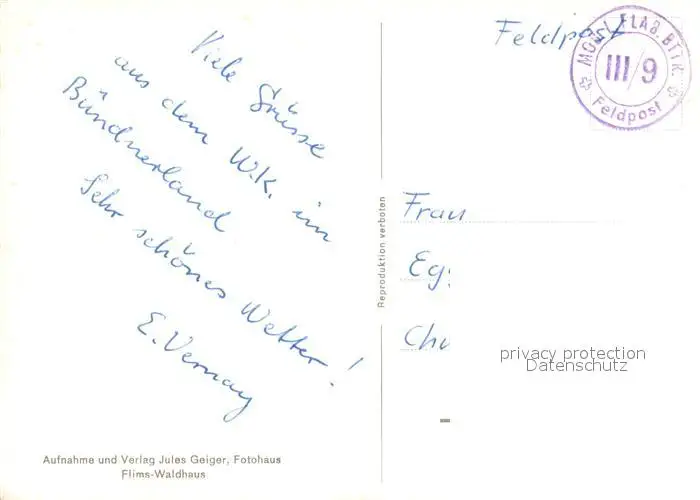 Viele Grüsse
aus dem W.K. im
Bündnerland
Sehr schönes Wetter!
E. Vernay
Aufnahme und Verlag Jules Geiger, Fotohaus
Flims-Waldhaus
Reproduktion verboten
Feldpost
FLAB. BTTR.
III/9
Feldpost
Frau
privacy protection
Datenschutz